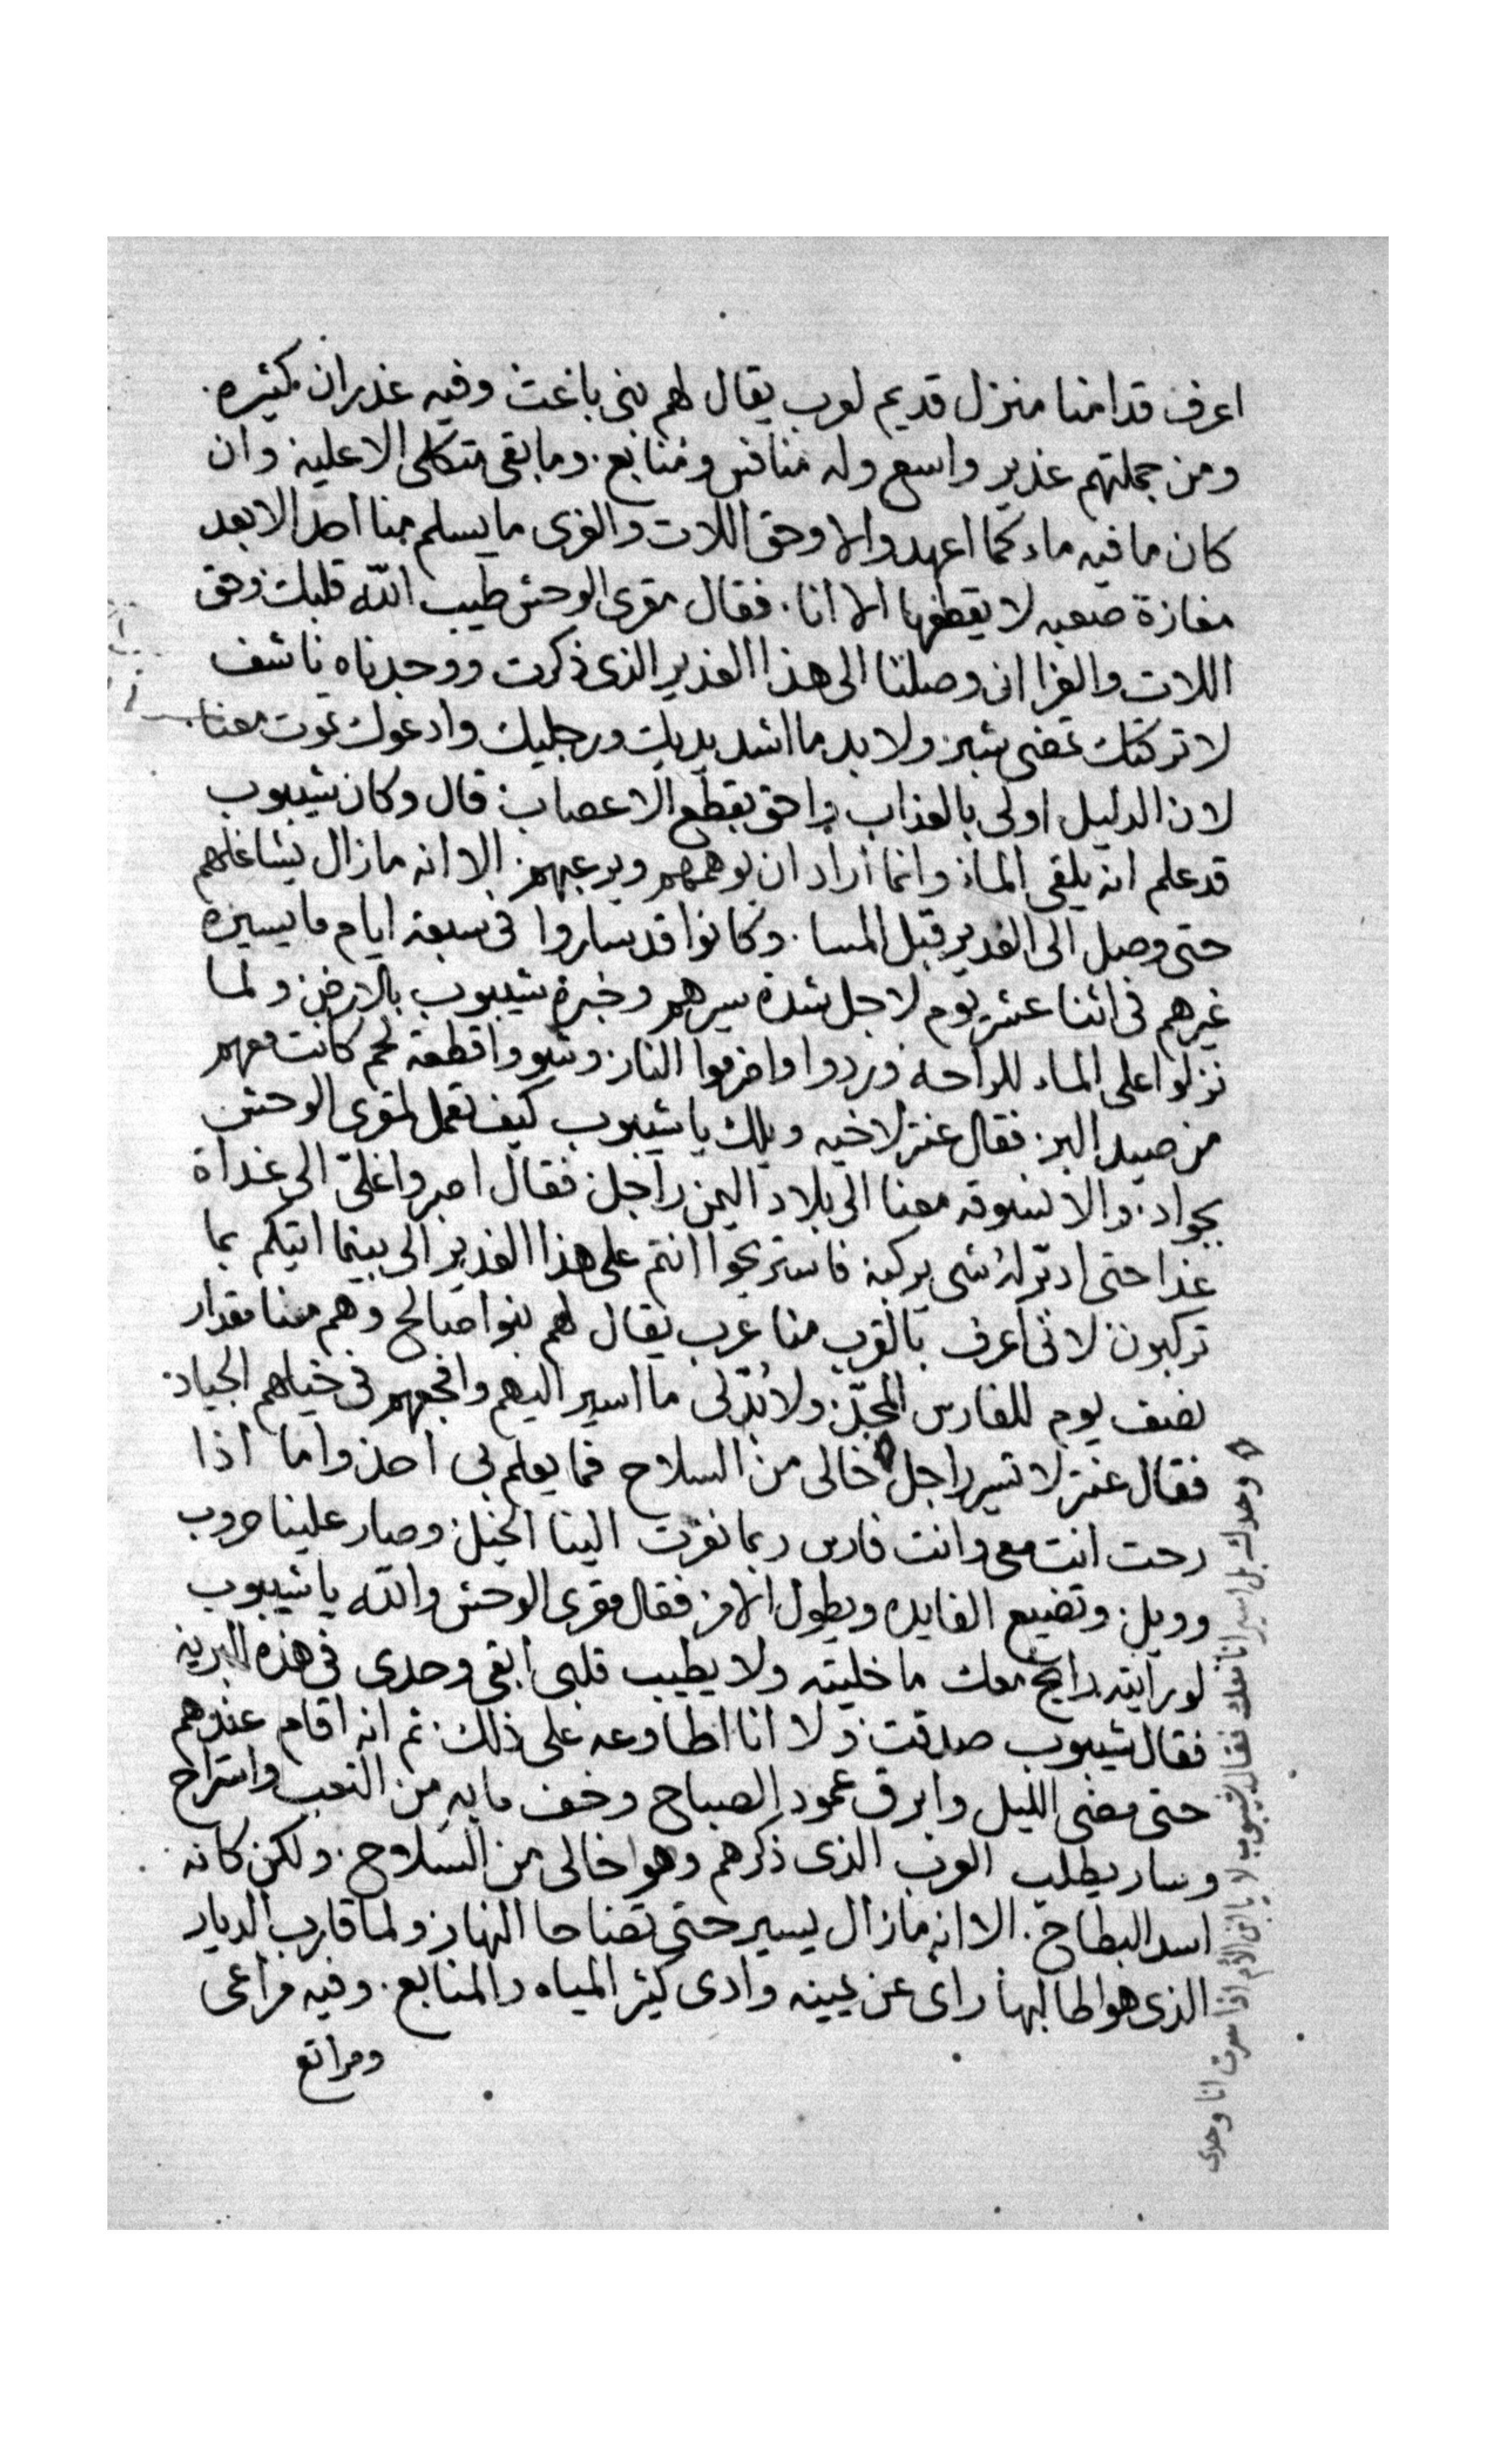 اعرف قدامنا منزل قديم لعرب يقال لهم بنى باغث وفيه غدران كثيره
ومن جملتهم غدير واسع وله منافس ومنابع. وما بقى متكلى الا عليه وان
كان ما فيه ماء كما اعهد والا وحق اللات والعزى ما يسلم منا احد الا بعد
مفازة صعبه لا يقطعها الا انا. فقال مقرى الوحش طيب الله قلبك وحق
اللات والعزا ان وصلنا الى هذا الغدير الذى ذكرت ووجدناه ناشف
لا تركتك تمضى شبر ولا بد ما اشد يديك ورجليك وادعوك تموت معنا.
لان الدليل اولى بالعذاب واحق بقطع الاعصاب قال وكان شيبوب
قد علم انه يلقى الماء وانما اراد ان يوهمهم ويرعبهم. الا انه ما زال يشاغلهم
حتى وصل الى الغدير قبل المسا. وكانوا قد ساروا فى سبعة ايام ما يسيره
غيرهم فى اثنا عشر يوم لاجل شدة سيرهم وخبرة شيبوب بالارض ولما
نزلوا على الماء للراحه وردوا واضرموا النار وشووا قطعة لحم كانت معهم
من صيد البر. فقال عنتر لاخيه ويلك يا شيبوب كيف نعمل لمقرى الوحش
بجواد. والا نسوقه معنا الى بلاد اليمن راجل فقال اصبروا على الى غداة
غدا حتى ادبر له شى يركبه فاستريحوا انتم على هذا الغدير الى بينما اتيكم بما
تركبون لانى اعرف بالقرب منا عرب يقال لهم بنوا صالح وهم منا مقدار
نصف يوم للفارس المجدّ ولا بُدّ لى ما اسير اليهم وافجعهم فى خيلهم الجياد.
فقال عنتر لا تسير راجل خالى من السلاح فما يعلم بى احد واما اذا
رحت انت معى وانت فارس ربما نفرت الينا الخيل وصار علينا حروب
وويل. وتضيع الفايده ويطول الامر فقال مقرى الوحش والله يا شيبوب
لو رايته رايح معك ما خليته ولا يطيب قلبى ابقى وحدى فى هذه البريه
فقال شيبوب صدقت ولا انا اطاوعه على ذلك ثم انه اقام عندهم
حتى مضى الليل وابرق عمود الصباح وخف ما به من التعب واستراح
وسار يطلب العرب الذى ذكرهم وهوا خالى من السلاح. ولكن كانه
اسد البطاح. الا انه ما زال يسير حتى تضاحا النهار ولما قارب الديار
الذى هوا طالبها راى عن يمينه وادى كثير المياه والمنابع. وفيه مراعى
ومراتع
وحدك بل اسير انا معك فقال شيبوب لا يا ابن الام اذا سرت انا وحدى